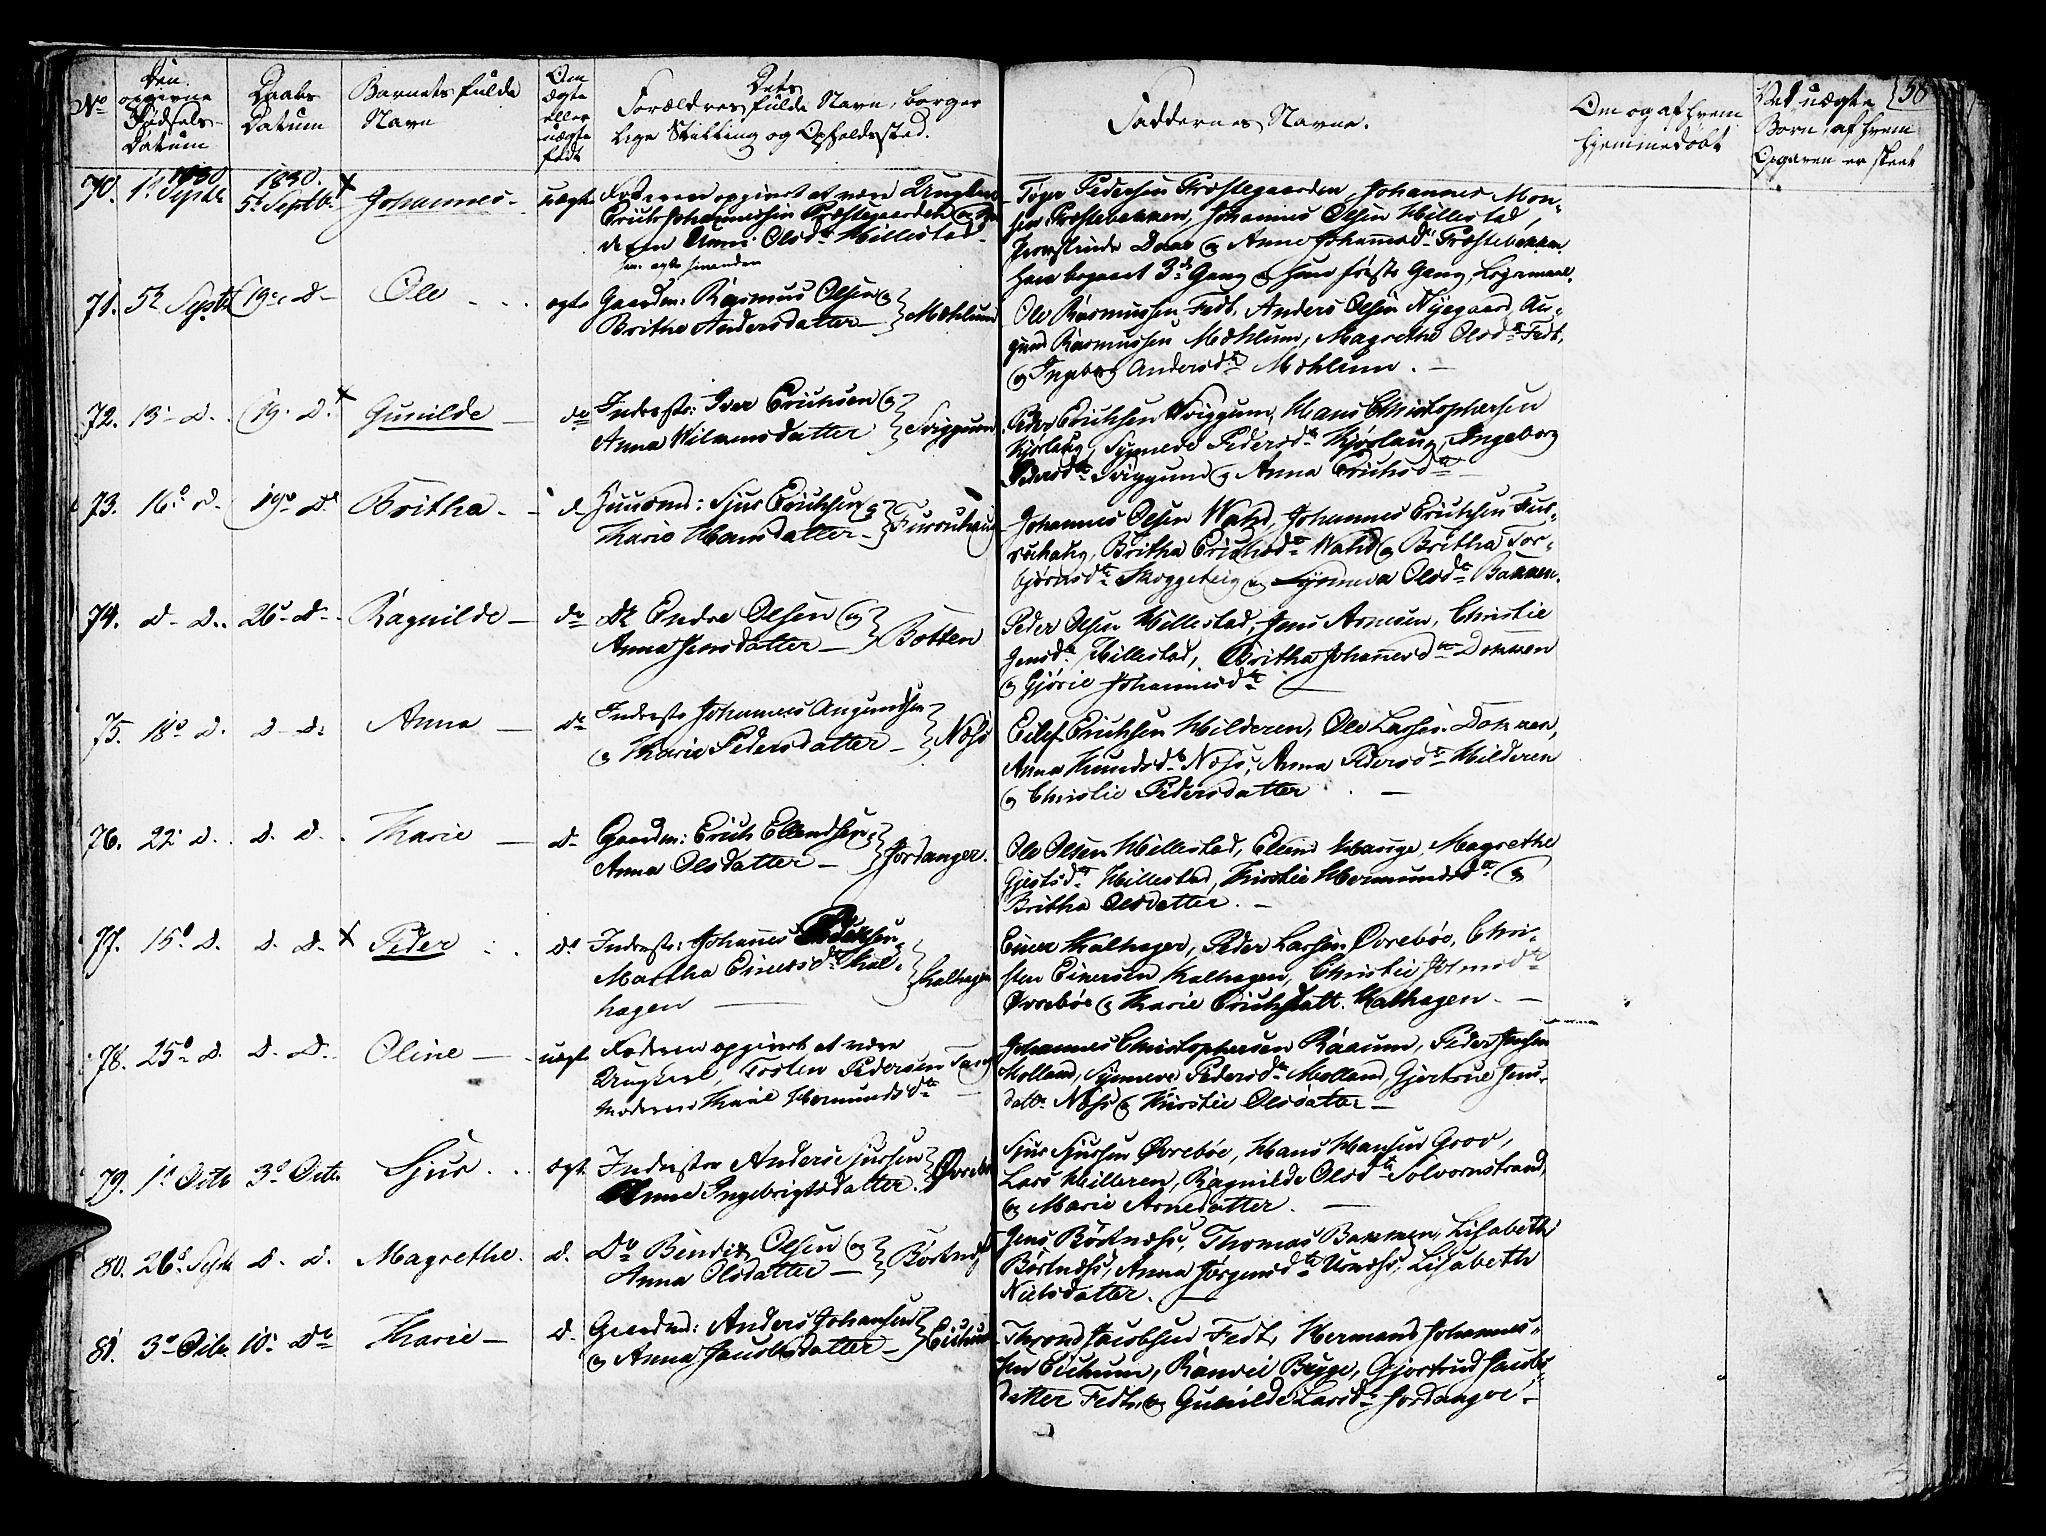 No
Den opgivne Fødsels-Datum
Daabs Datum
Barnets fulde Navn
Om ægte eller uægte født
Dets Forældres fulde Navn, borgerlige Stilling og Opholdssted.
Faddernes Navne.
Om og af hvem hjemmedøbt
Ved uægte Børn, af hvem Opgaven er skeet
58
70. 1830 1ste Septbr 1830. 5te Septb. x Johannes - uægte Faderen opgivet at være Ungkarl
Erich Johannessen Præstegaarden og
Moderen Anne Olsdr Hillestad
Tøger Pedersen Præstegaarden, Johannes Mon-
sen Præstebakken, Johannes Olsen Hillestad,
Daae og Anne Johannesdr Præstebakken.
Han begaaet 3die Gang og Hun første Gang Leiermaal.
71. 5te Septbr 19de D - Ole - ægte Gaardm: Rasmus Olsen og
Brithe Andersdatter - Mæhlum
Ole Rasmussen Fedt, Anders Olsen Nyegaard, An-
gund Rasmussen Mæhlum, Magrethe Olsdtr Fedt,
og Ingeborg Andersdtr Mæhlum. -
72. 13- D. 19. D. x Gunilde - do Inderste: Iver Erichsen og
Anna Wilumsdatter Sviggum
Peder Erichsen Sviggum, Hans Christophersen
Kjørlaug, Synneve Pedersdtr Kjørlaug, Ingeborg
Pedersdtr Sviggum og Anna Erichsdtr
73. 16de D. 19de D. Britha - d. Huusmd: Sjur Erichsen og
Karie Hansdatter - Furuhaug
Johannes Olsen Wahd, Johannes Erichsen Fur-
ruhaug, Britha Erichsdtr Wahd og Britha Tor-
bjørnsdtr Skoggeteig og Synneva Olsdtr Bakken.
74. D - D. 26de D - Ragnilde - do Do Endre Olsen og
Anna Jensdatter - Botten
Peder Olsen Hillestad, Jens Arnesen, Christie
Jensdtr Hillestad, Britha Johannesdtr Dokken
og Gjørie Johannesdtr
75. 18de D. D - D. Anna - do Inderste Johannes Angundsen
og Karie Pedersdatter - Næss
Eilef Erichsen Hilderen, Ole Larsen Dokken,
Anna Knudsdtr Næss, Anna Pedersdtr Hilderen
og Christie Pedersdatter. -
76. 22de D. D. D. Karie - do Gaardm: Erich Ellendsen og
Anna Olsdatter - Jordanger.
Ole Olsen Hillestad, Ellend Hauge, Magrethe
Gjestsdtr Hillestad, Kirstie Hermundsdtr og
Britha Olsdatter. -
77. 15de D. D. D. x Peder. do Inderste: Johannes
Martha Einersdtr Kal-
hagen - Kalhagen
Einer Kalhagen, Peder Larsen Øvrebøe, Chri-
sten Einersen Kalhagen, Christie
Øvrebøe og Karie Erichsdatt. Kalhagen. -
78. 25de D. D. D. Oline - uægt Faderen opgivet at være
Ungkarl, Torsten Pedersen
Moderen Karie Hermundsdtr
Johannes Christophersen Raaum, Peder Jensen
Molland, Synneve Pedersdtr Molland, Gjertrue Jens-
datt. Næss og Kirstie Olsdatter -
79. 1ste Octb 3de Octb. Sjur. ægt. Inderster Anders Sjursen
Anne Ingebrigtsdatter. Øvrebøe
Sjur Sjursen Øvrebøe, Hans Hansen Groov,
Lars Hilleren, Ragnilde Olsdtr Solvornstrand,
og Marie Arnedatter. -
80. 26de Septb. D. D. Magrethe. d. Do Bendix Olsen og
Anna Olsdatter - Børtnes
Jens Børtnæss, Thomas Bakken, Lisabeth
Børtnæss, Anna Jørgensdtr Urnæss, Lisabeth
Nielsdatter. -
81. 3de Octb. 10. Do Karie - d. Gaardmd: Anders Johansen
og Anna Jacobsdatter - Eichum
Thrond Jacobsen Fedt, Hermand Johannes-
sen Eichum, Ranvei Bugge, Gjertrud Jacobs-
datter Fedt, og Gunilde Larsdr Jordanger -